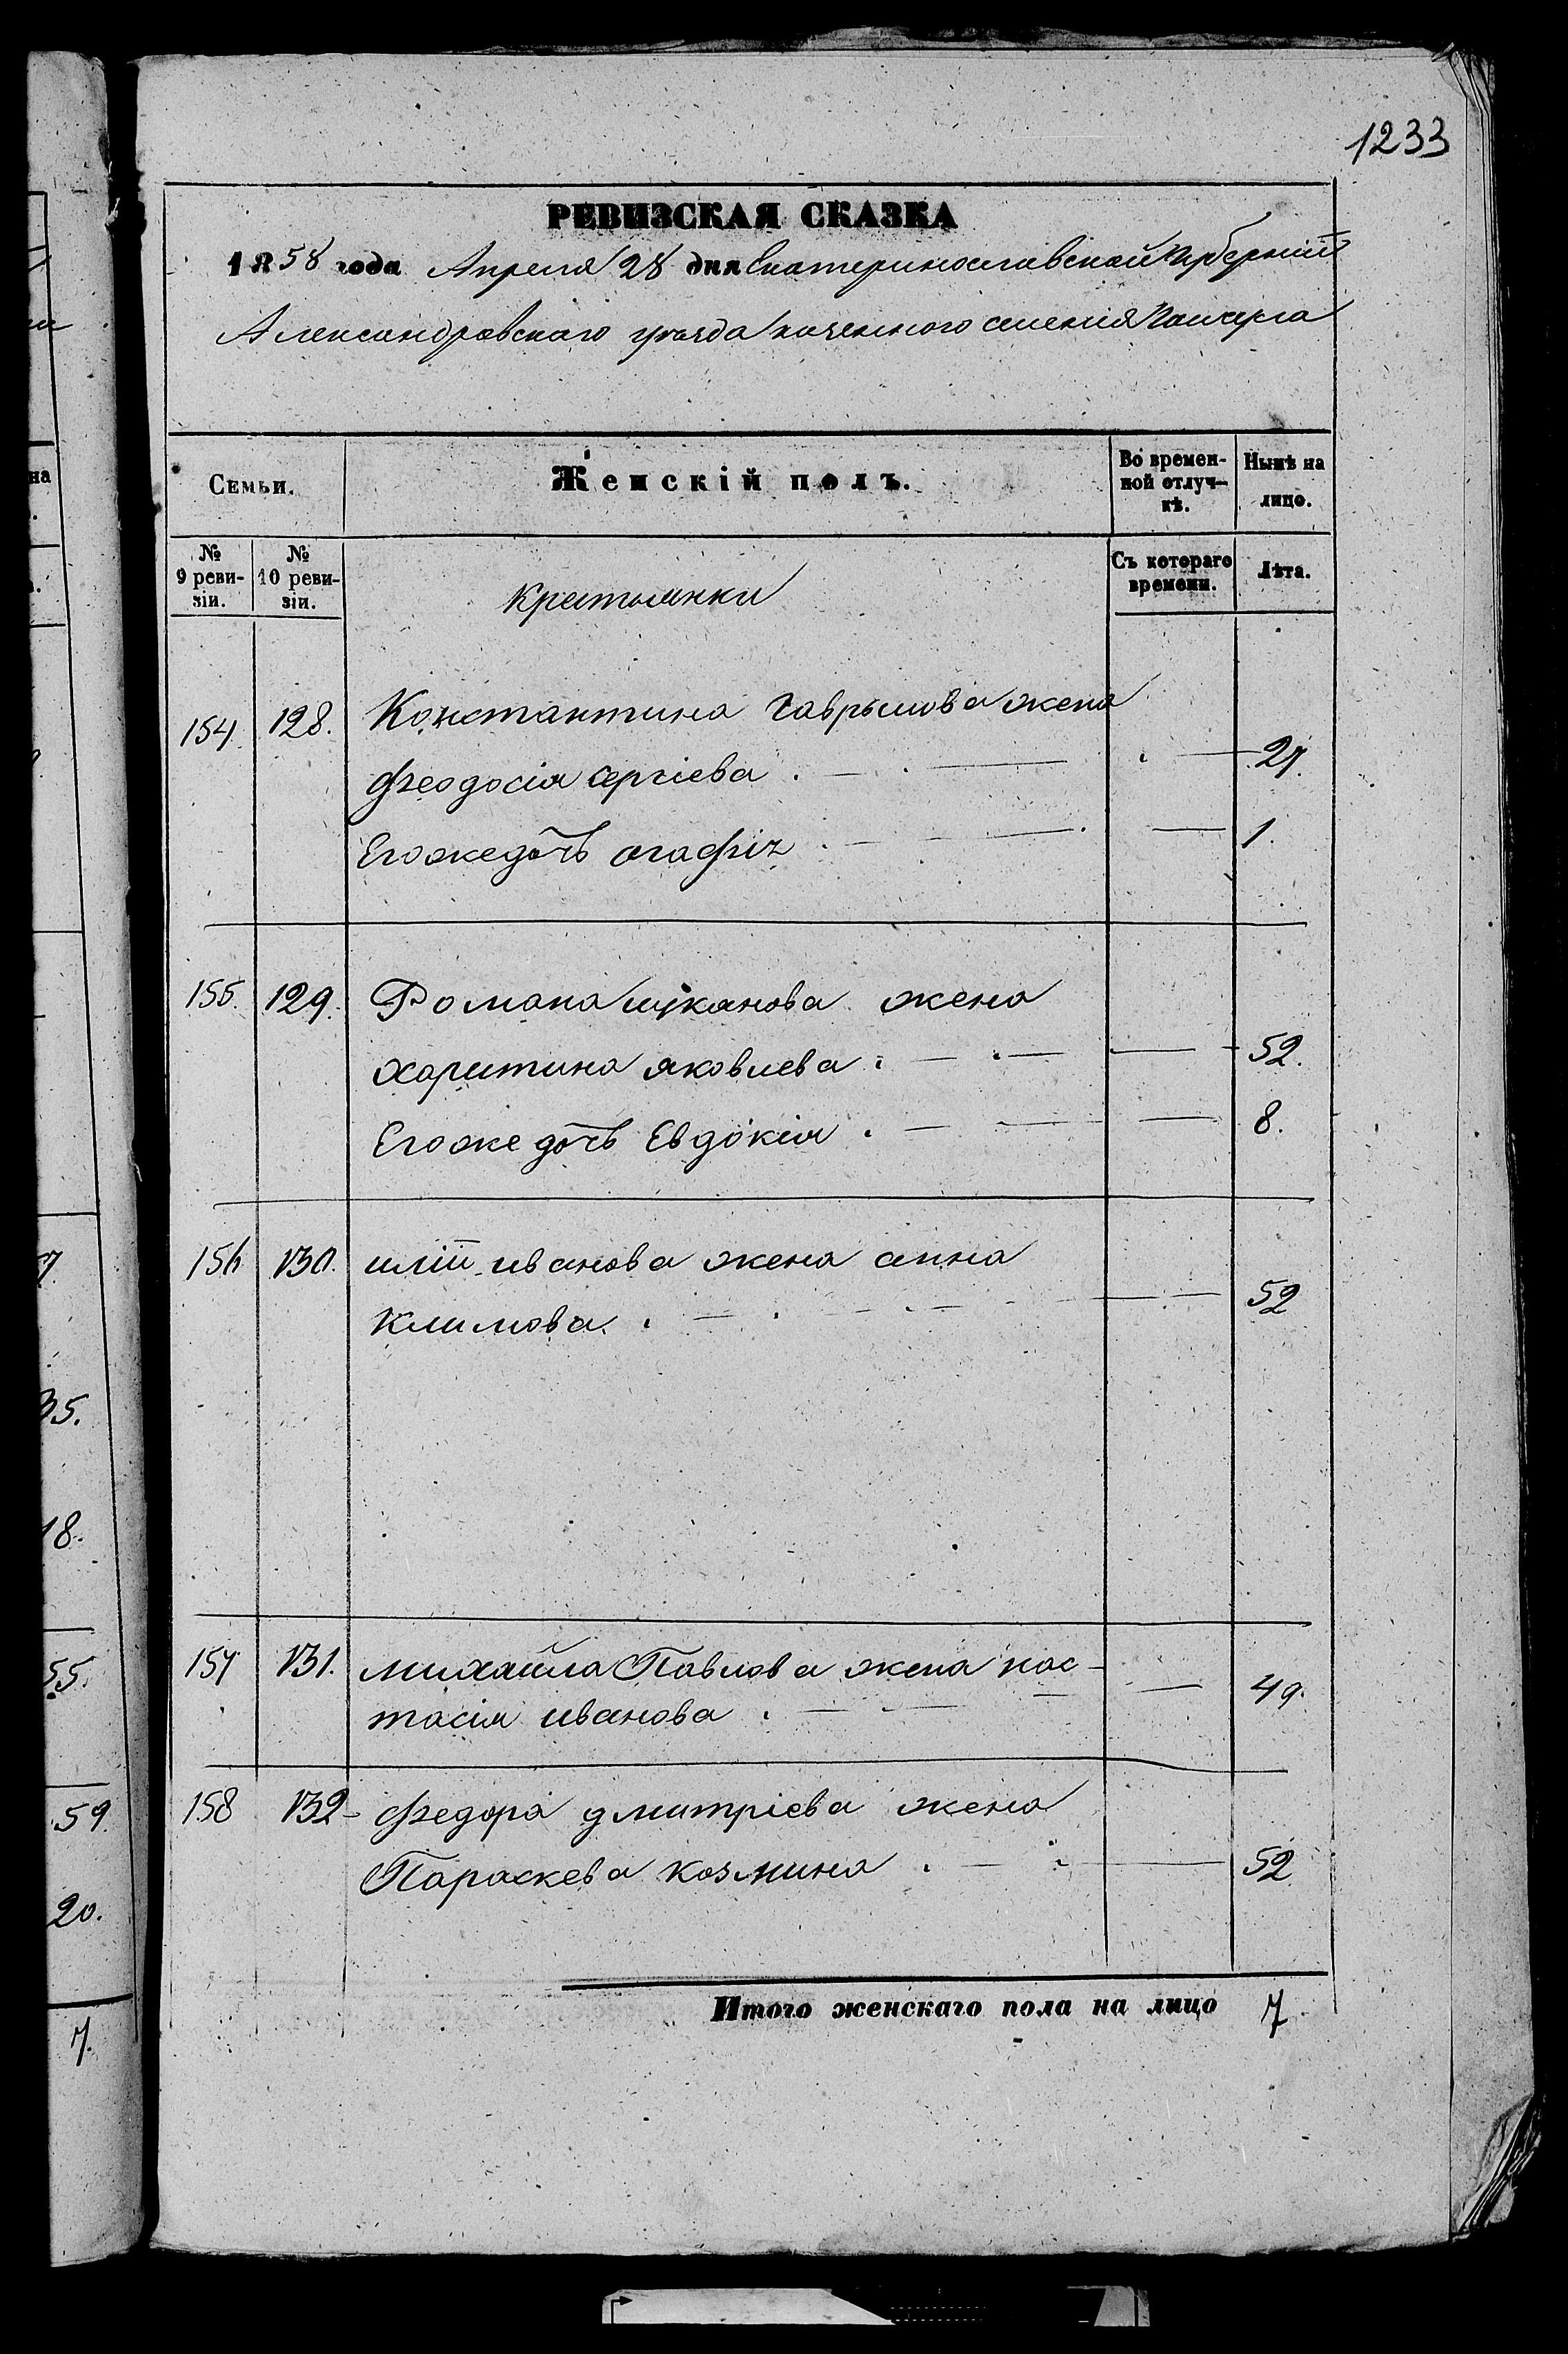 1233
РЕВИЗСКАЯ СКАЗКА
1858 года Апреля 28 дня Екатеринославской Губерніи
Александровскаго уѣзда казенного селенія
Семьи. Женскій полъ. Во времен-ной отлуч-кѣ. Нынѣ на лицо.
№ 9 реви-зіи. № 10 реви-зіи. Крестьянки Съ котораго времени. Лѣта.
154. 128. Константина Гаврылова жена
Феодосія Сергіева . — . — . — 27.
Егоже дочь Огафія . — — 1.
155. 129. Романа жена
Харитина Яковлева . — — — 52.
Егоже дочь Евдокія . — — — 8.
156 130. иліи иванова жена анна
Климова . — . — — 52
157 131. михайла Павлова жена нас-
тасія иванова . — — — 49.
158 132 Федора дмитріева жена
Параскева козмина . — — 52
Итого женскаго пола на лицо 7
35.
18.
55.
59.
20.
7.